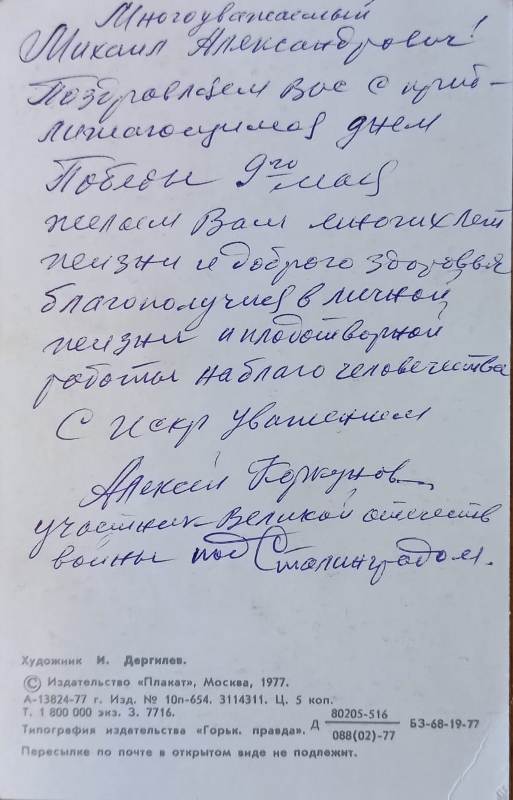 Многоуважаемый
Михаил Александрович!
Поздравляем Вас с приб-
лижающимся днем
Победы 9го мая
желаем Вам многих лет
жизни и доброго здоровья
благополучия в личной
жизни и плодотворной
работы на благо человечества
С искр уважением
Алексей Коркунов
участник Великой отечеств
войны под Сталинградом.
Художник И. Дергилев.
© Издательство «Плакат», Москва, 1977.
А-13824-77 г. Изд. № 10п-654. 3114311. Ц. 5 коп.
Т. 1 800 000 экз. З. 7716.
Типография издательства «Горьк. правда». Д 80205-516 БЗ-68-19-77
088(02)-77
Пересылке по почте в открытом виде не подлежит.